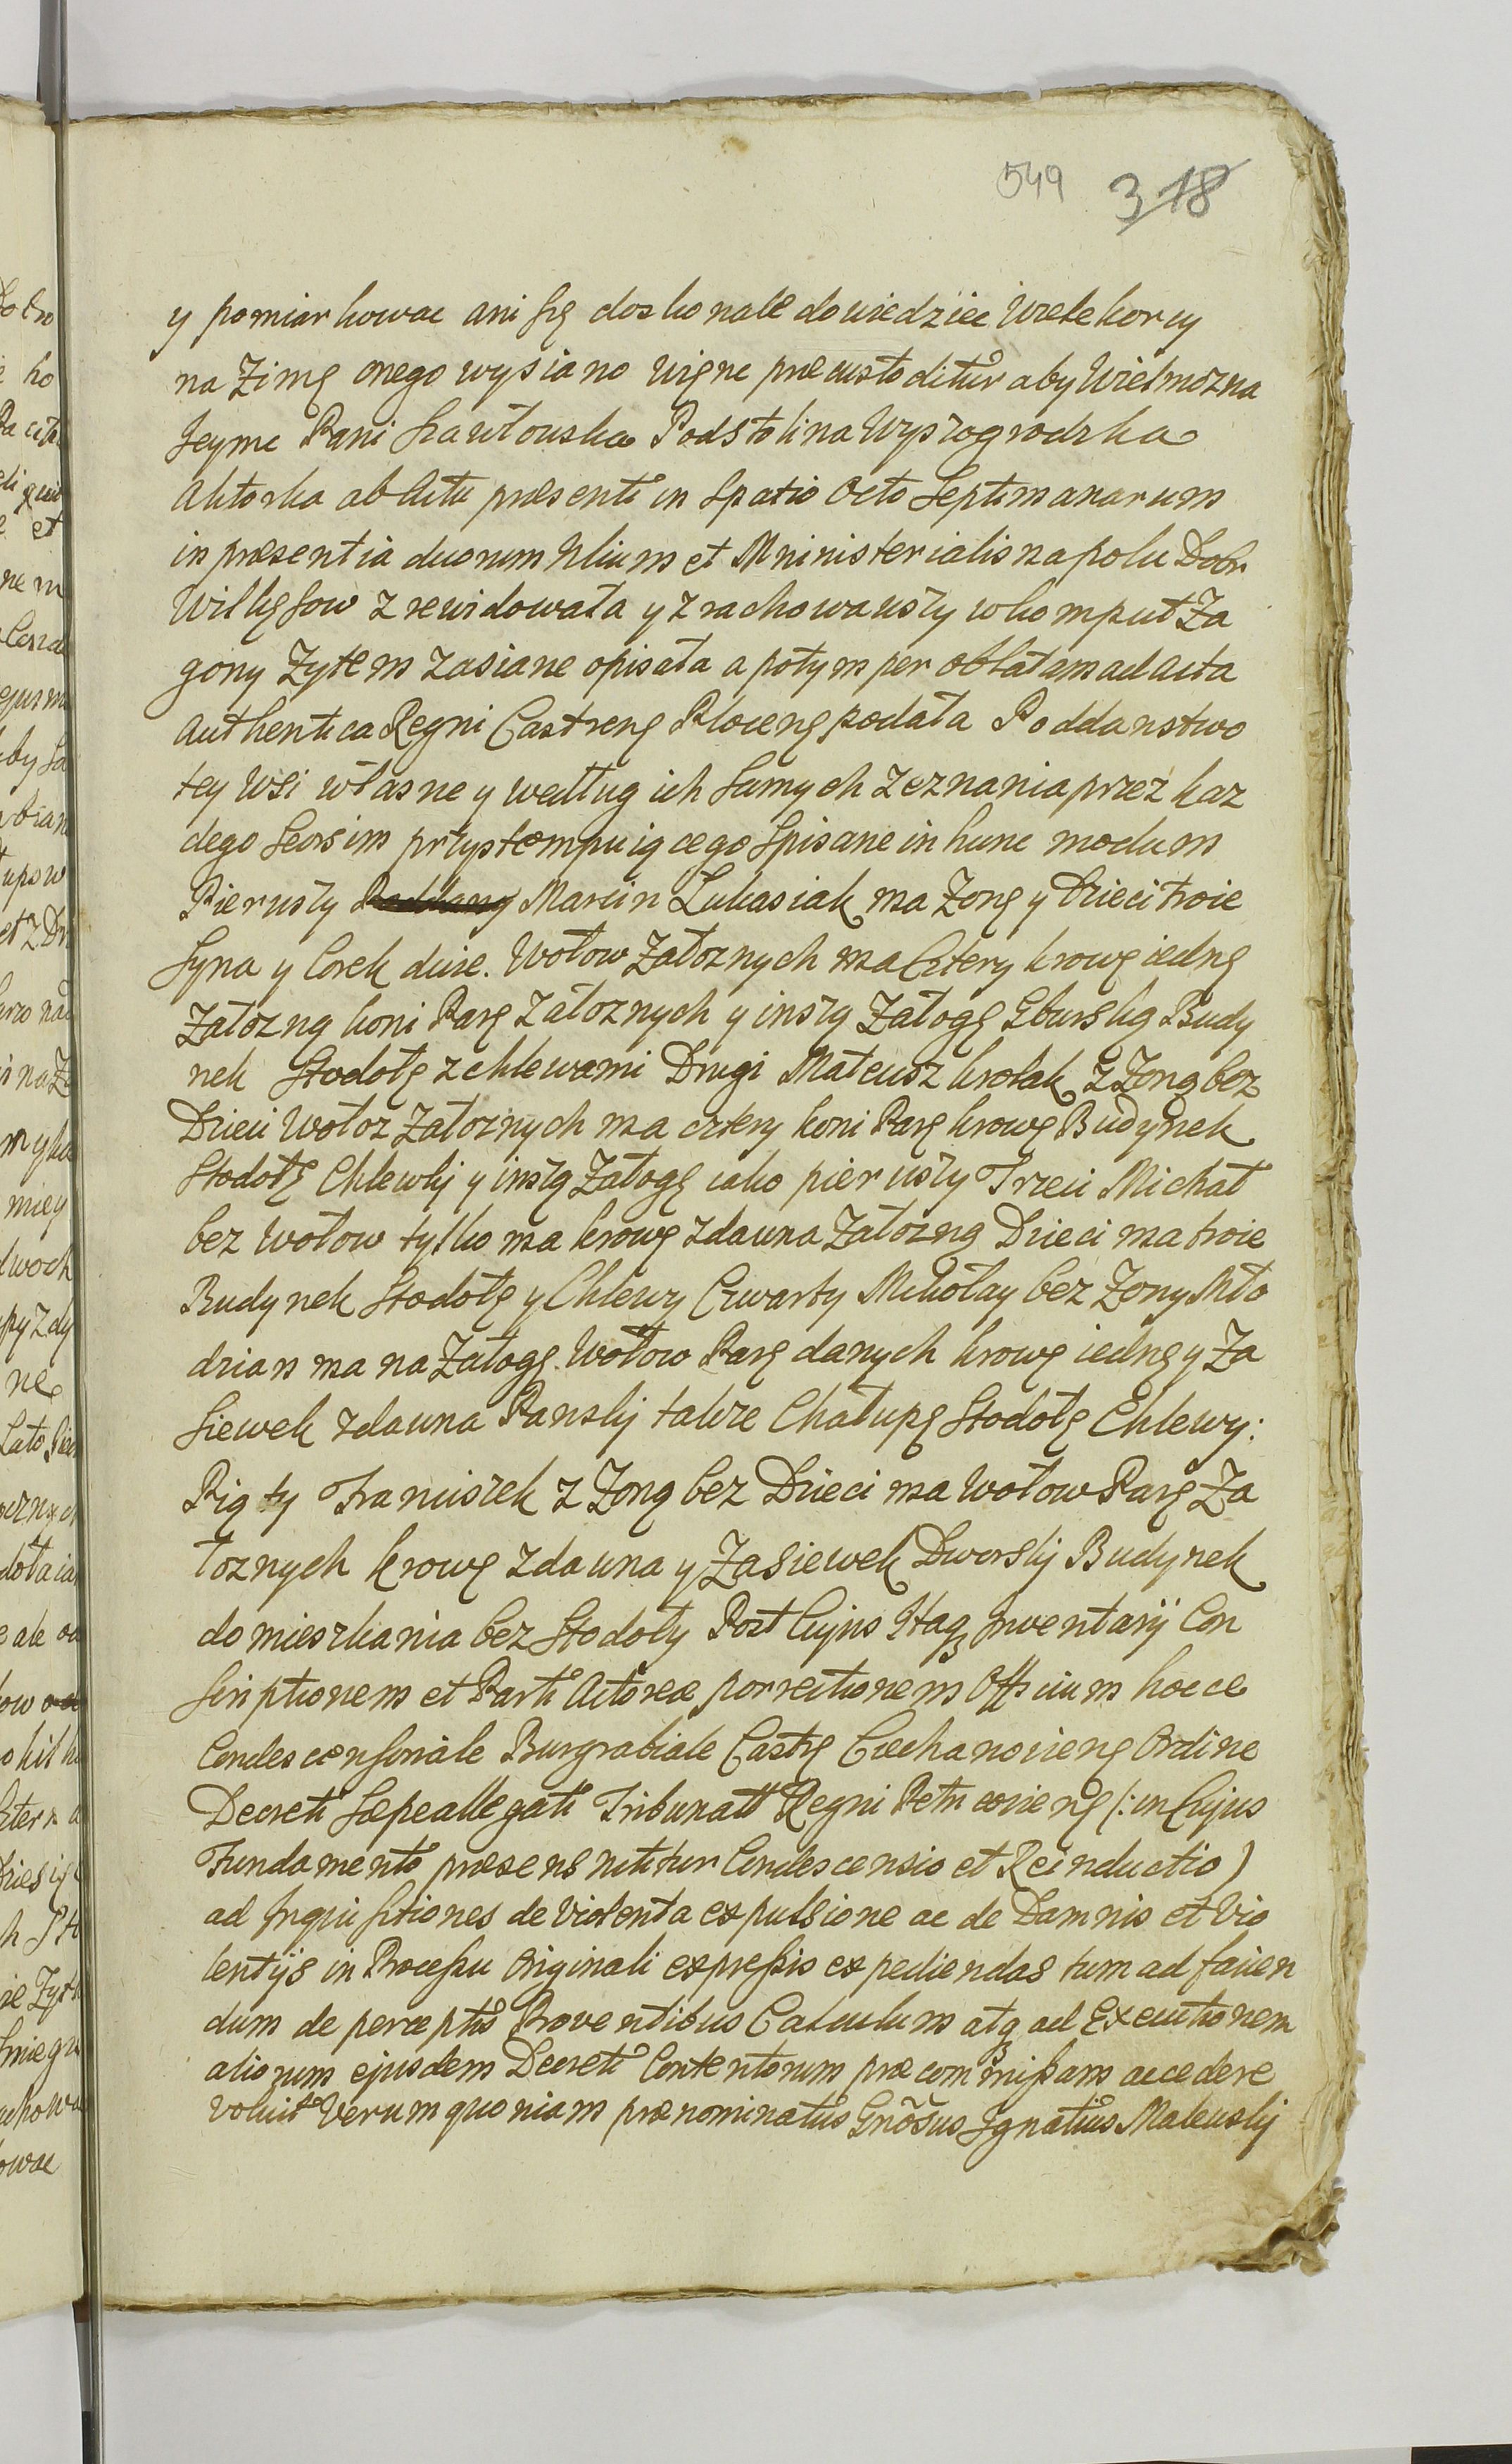 549 318
y pomiarkowac ani się doskonale dowiedziec Wiele korcy
na Zimę onego wysiano Więnc præcustoditur aby Wielmozna
Jeymc Pani Szawłouska Podstolina Wyszogrodzka
Aktorka ab Actu præsenti in Spatio Octo Septimanarum
in præsentia duorum Nlium et Mninisterialis na polu Dobr
Wilkęsow zrewidowała y zrachowawszy w komput Za
gony Zytem zasiane opisała a potym per Oblatam ad Acta
Authentica Regni Castreng Ploceng podała Poddanstwo
tey Wsi własne y według ich Samych Zeznania przez kaz
dego Seorsim przystempuiącego Spisane in hunc modum
Pierwszy Poddany Marcin Łukasiak ma Zonę y Dzieci troie
Syna y Corek dwie. Wołow Załoznych ma Cztery krowę iednę
Załozną koni Parę Załoznych y inszą Załogę Gburską Budy
nek Stodołę z chlewami Drugi Mateusz krolak z Zoną bez
Dzieci Wołoz Załoznych ma cztery koni Parę krowę Budynek
Stodołę Chlewkj y inszą Załogę iako pierwszy Trzeci Michał
bez Wołow tylko ma krowę zdawna Załozną Dzieci ma troie
Budynek Stodołę y Chlewy Czwarty Mikołay bez Zony Mło
dzian ma na Załogę Wołow Parę danych krowę iednę y Za
Siewek zdawna Panskj takze Chałupę Stodołę Chlewy:
Piąty Franciszek z Zoną bez Dzieci ma Wołow Parę Za
łoznych krowę zdawna y Zasiewek Dworskj Budynek
do mieszkania bez Stodoły Post Cujus Itaq Inventarij Con
Scriptionem et Parti Actoreæ porrectionem Officium hocce
Condescensoriale Burgrabiale Castrę Ciechanovieng Ordine
Decreti Sæpeallegati Tribunatt Regni Petricovieng (: in Cujus
Fundamento præsens nititur Condescensio et Reinductio)
ad Inquisitiones de violenta expulsione ac de Damnis et Vio
lentijs in Processu Originali expressis expediendas tum ad facien
dum de perceptis Proventibus Calculum atq ad Executionem
aliorum ejusdem Decreti Contentorum præcommissam accedere
Voluit Verum quoniam prænominatus Gnosus Ignatius Makuskj